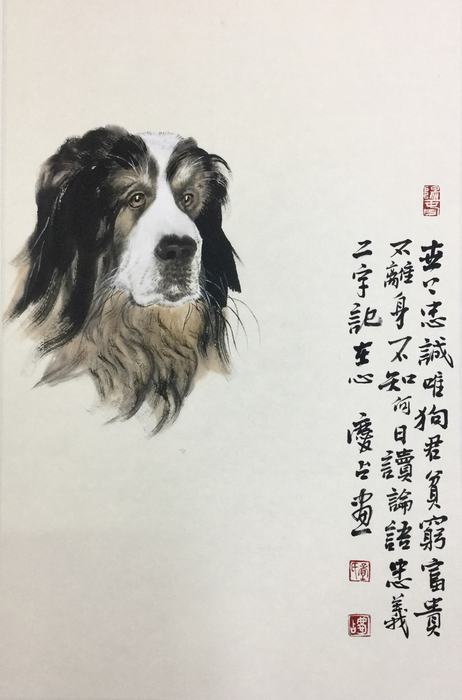 世上忠誠唯狗君貧窮富貴
不離身不知何日讀論語忠義
二字記在心 慶占畫